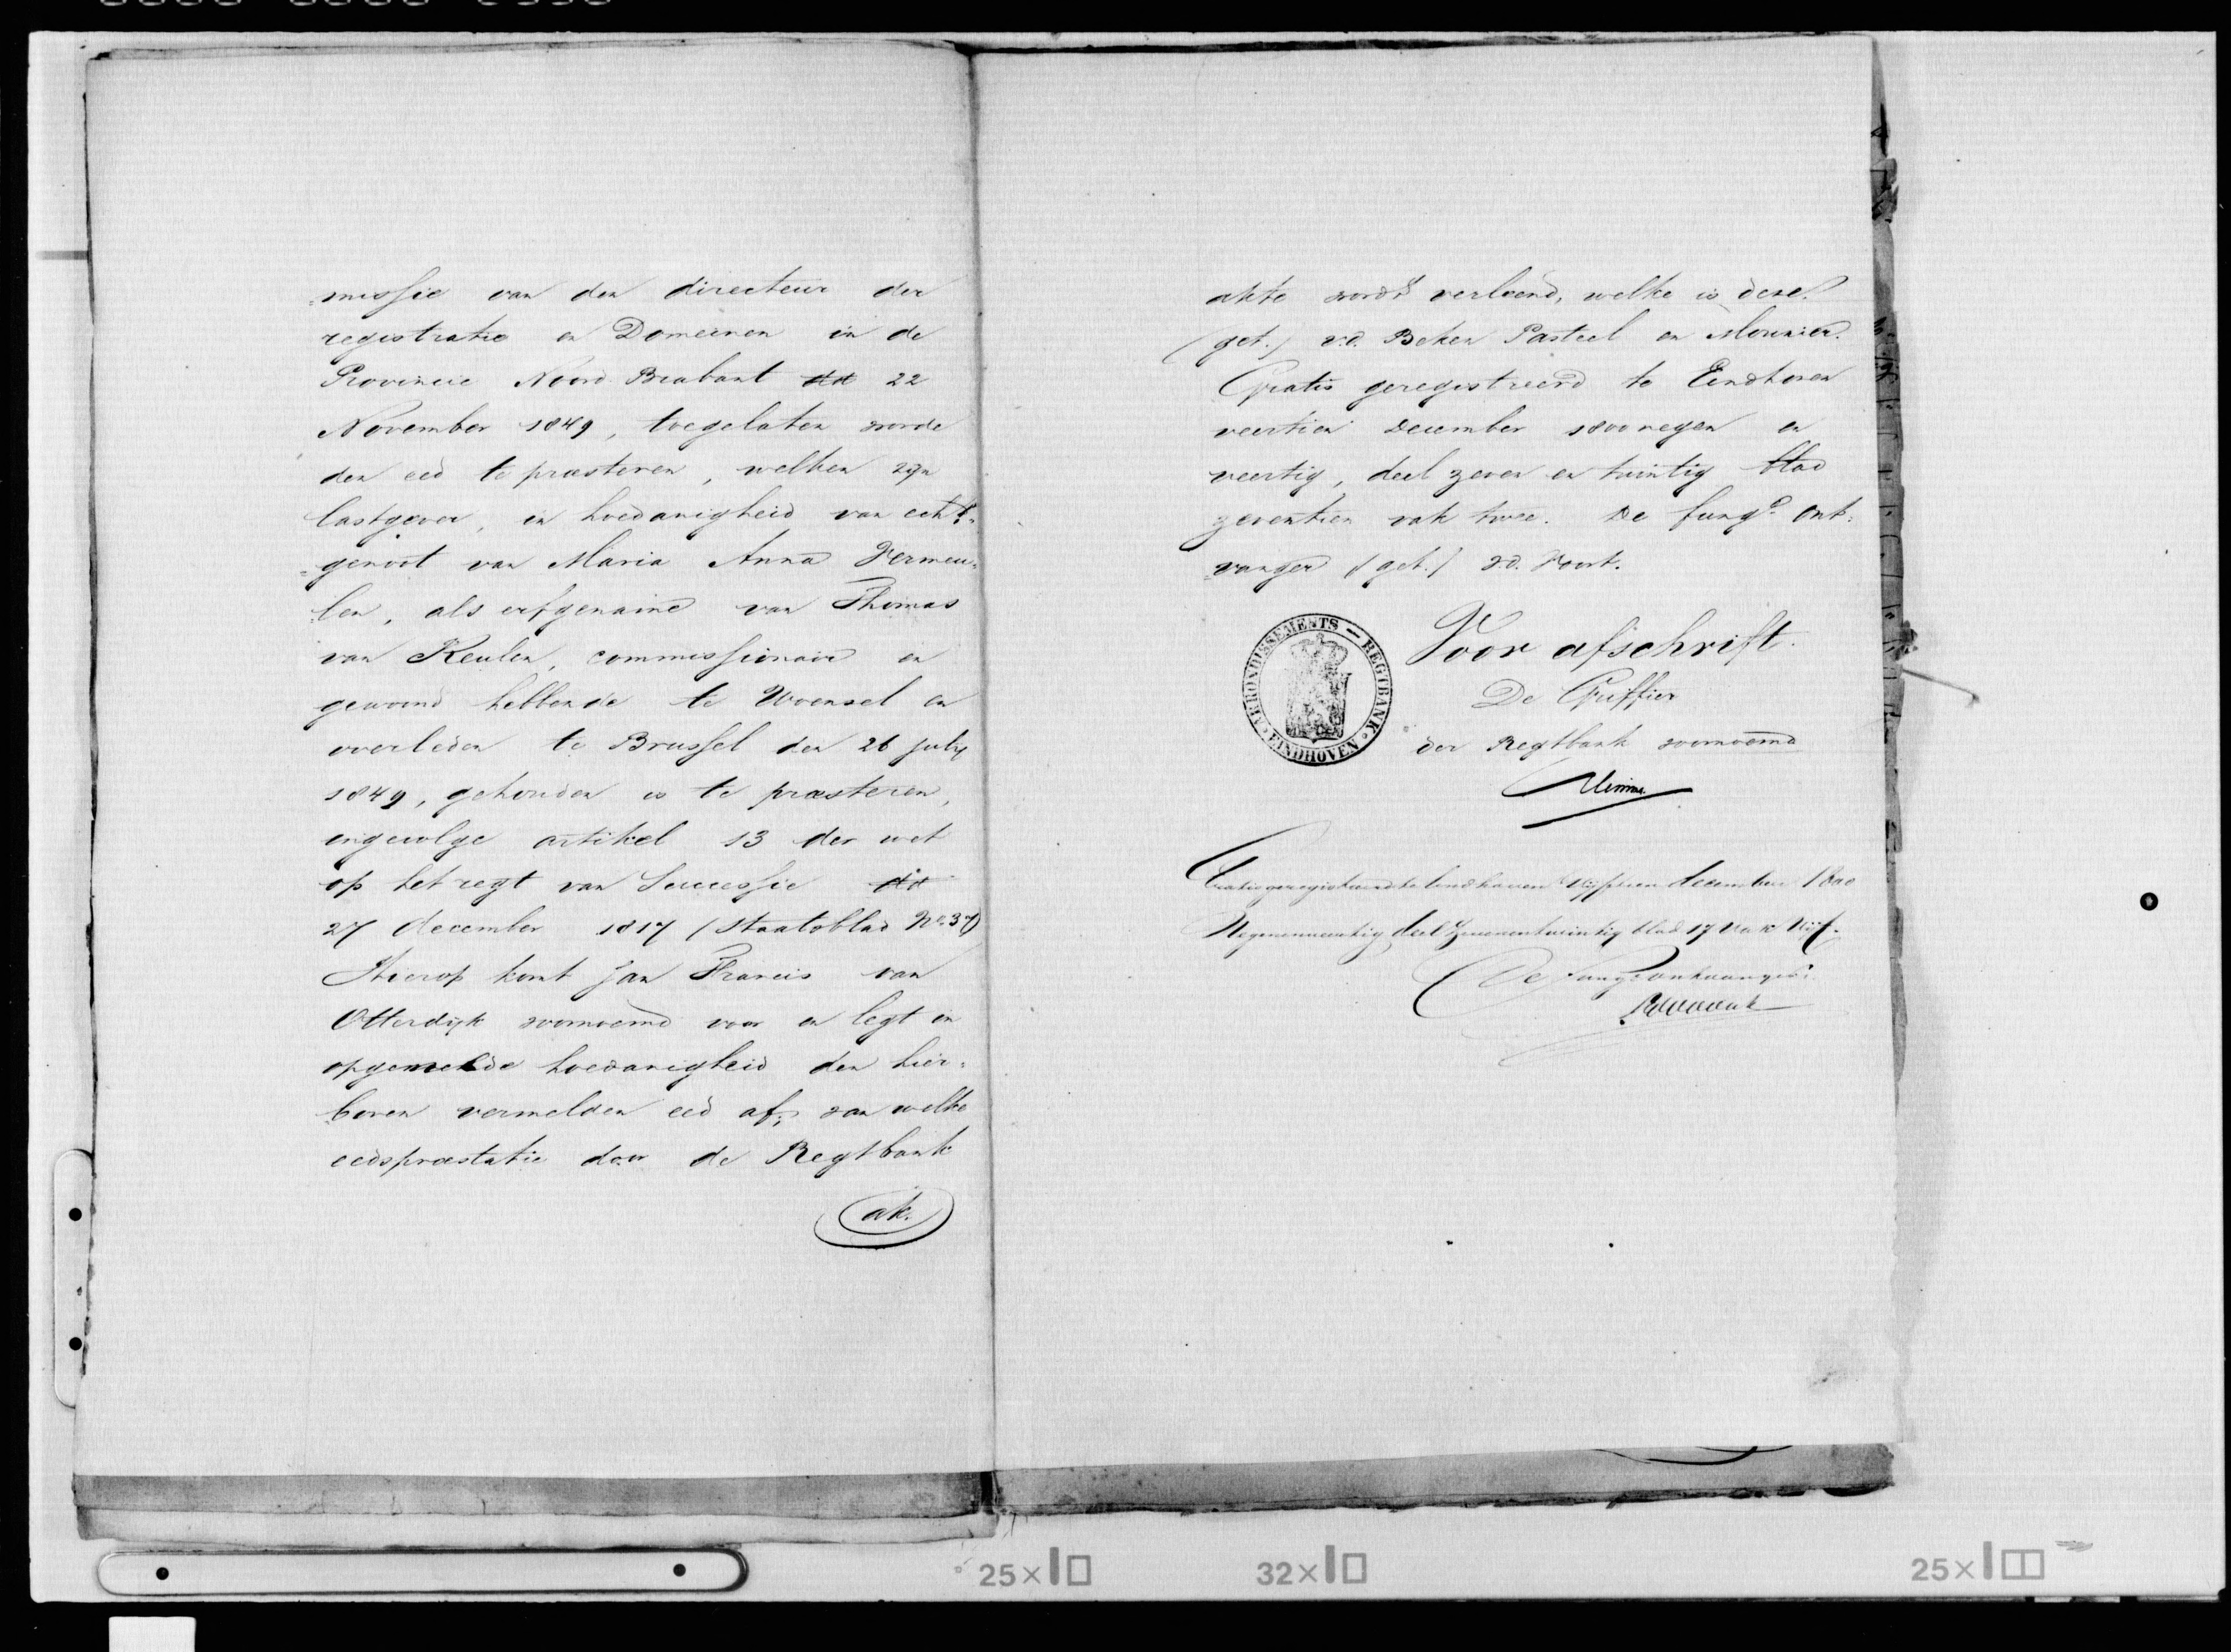 =missie van den directeur der
registratie en Domeinen in de
Provincie Noord Brabant dd 22
November 1849, toegelaten worde
den eed te præsteren, welken zijn
lastgever, in hoedanigheid van echt=
=genoot van Maria Anna Vermeu=
=len, als erfgename van Thomas
van Keulen, commissionair en
gewoond hebbende te Woensel en
overleden te Brussel den 26 july
1849, gehouden is te præsteren,
ingevolge artikel 13 der wet
op het regt van Successie dd
27 december 1817 (Staatsblad No. 37)
Hierop komt Jan Francis van
Otterdijk voornoemd voor en legt in
opgemelde hoedanigheid den hier=
=boven vermelden eed af; van welke
eedspræstatie door de Regtbank
ak.
akte wordt verleend, welke is deze.
(get.) v.d. Beken Pasteel en Mounier.
Gratis geregistreerd te Eindhoven
veertien December 1800 negen en
veertig, deel zeven en twintig blad
zeventien vak twee. De fungd. Ont=
=vanger (get.) v.d. Voort.
ARRONDISSEMENTS - REGTBANK · EINDHOVEN ·
Voor afschrift.
De Griffier
der Regtbank voornoemd
Gratis geregistreerd te Eindhoven vijftien december 1800
Negenenveertig deel Zevenentwintig blad 17 Vak Vijf.
De Fungd. ontvanger.
25× 32× 25×